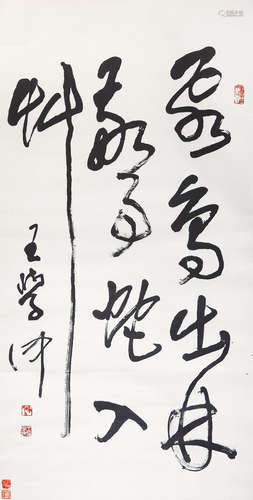 飛鳥出林
驚蛇入
艸
王學仲